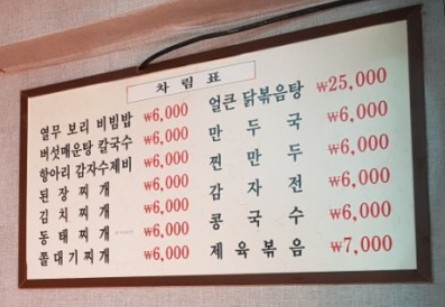 차림표
열무 보리 비빔밥 ₩6,000
버섯매운탕 칼국수 ₩6,000
항아리 감자수제비 ₩6,000
된장찌개 ₩6,000
김치찌개 ₩6,000
동태찌개 ₩6,000
쫄대기찌개 ₩6,000
얼큰 닭볶음탕 ₩25,000
만두국 ₩6,000
찐만두 ₩6,000
감자전 ₩6,000
콩국수 ₩6,000
제육볶음 ₩7,000